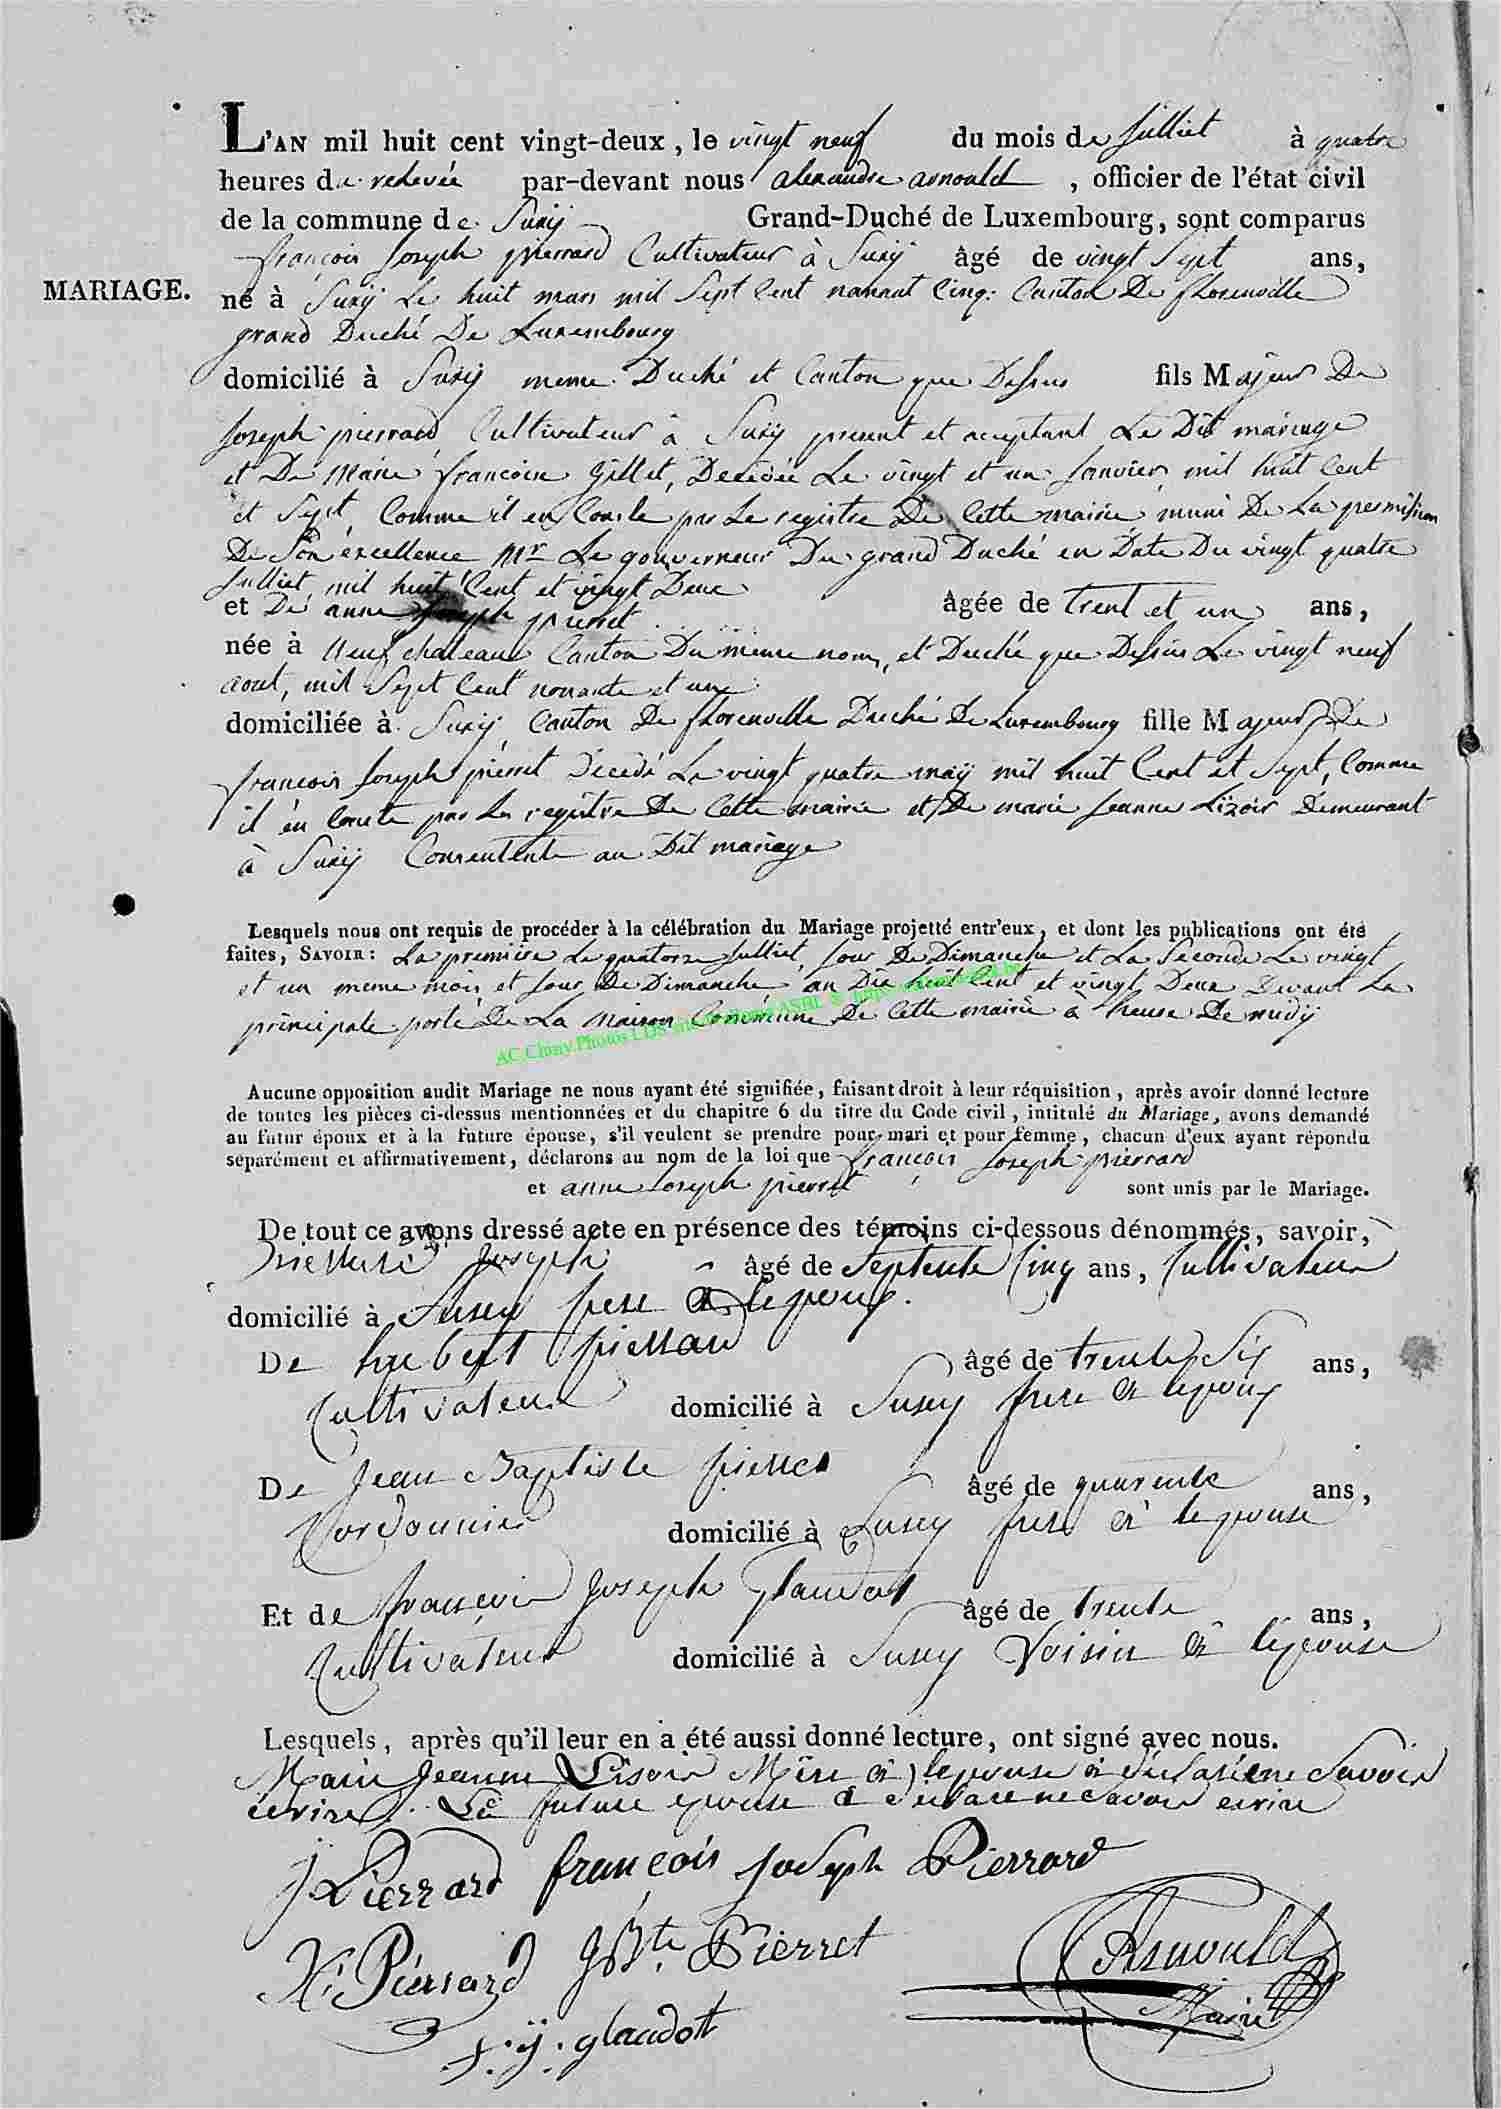 L'AN mil huit cent vingt-deux, le vingt neuf du mois de Julliet à quatre
heures de relevée par-devant nous alexandre arnould, officier de l'état civil
de la commune de Suxÿ Grand-Duché de Luxembourg, sont comparus
françois Joseph pierrard Cultivateur à Suxÿ âgé de vingt Sept ans,
MARIAGE.
né à Suxÿ Le huit mars mil Sept Cent nonant Cinq: Canton De florenville
grand Duché De Luxembourg
domicilié à Suxÿ meme Duché et Canton que Dessus fils Majeur De
Joseph pierrard Cultivateur à Suxÿ present et acceptant Le Dit mariage
et De Marie françoise Gillet, Decedée Le vingt et un Janvier mil huit Cent
et Sept, Comme il en Conste par Le registre De Cette mairie muni De La permission
De Son excellence Mr Le gouverneur Du grand Duché en Date Du vingt quatre
Julliet mil huit Cent et vingt Deux
et De anne Joseph pierret âgée de trent et un ans,
née à Neufchateau Canton Du meme nom, et Duché que Dessus Le vingt neuf
aout, mil Sept Cent nonante et une
domiciliée à Suxÿ Canton De florenville Duché De Luxembourg fille Majeur De
francois Joseph pierret Décedé Le vingt quatre maÿ mil huit Cent et Sept, Comme
il en Conste par Le registre De Cette mairie et De marie Jeanne Lizoir Demeurant
à Suxÿ Consentente au Dit mariage
Lesquels nous ont requis de procéder à la célébration du Mariage projetté entr'eux, et dont les publications ont été
faites, SAVOIR: La premiere Le quatorze Julliet Jour De Dimanche et La Seconde Le vingt
et un meme mois et Jour De Dimanche an Dix huit Cent et vingt Deux Devant La
principale porte De La Maison Commune De Cette mairie à heure De midÿ
AC.Chiny.Photos LDS
ASBL
Aucune opposition audit Mariage ne nous ayant été signifiée, faisant droit à leur réquisition, après avoir donné lecture
de toutes les pièces ci-dessus mentionnées et du chapitre 6 du titre du Code civil, intitulé du Mariage, avons demandé
au futur époux et à la future épouse, s'il veulent se prendre pour mari et pour femme, chacun d'eux ayant répondu
séparément et affirmativement, déclarons au nom de la loi que françois Joseph pierrard
et anne Joseph pierret sont unis par le Mariage.
De tout ce avons dressé acte en présence des témoins ci-dessous dénommés, savoir,
Joseph âgé de Septente Cinq ans, Cultivateur
domicilié à Suxy pere lepoux.
De hubert pierrard âgé de trente Six ans,
Cultivateur domicilié à Suxy frere lepoux
De Jean Baptiste pierret âgé de quarente ans,
Cordonnier domicilié à Suxy frere à lepouse
Et de francois Joseph Glaudot âgé de trente ans,
Cultivateur domicilié à Suxy Voisin à lepouse
Lesquels, après qu'il leur en a été aussi donné lecture, ont signé avec nous.
Marie Jeanne Lisoir Mère lepouse à déclaré ne Savoir
écrire. La future epouse a declaré ne Savoir ecrire
J Pierrard françois joseph Pierrard
H: Piérrard JBte Pierret Arnould
Maire
f: j: glaudott